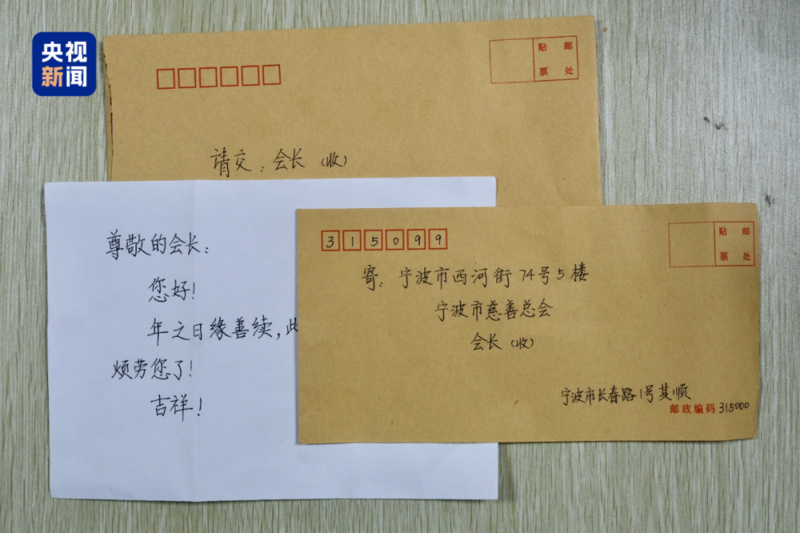 央视
新闻
贴 邮
票 处
请交：会长（收）
尊敬的会长：
您好！
年之日缘善续，此
烦劳您了！
吉祥！
315099
贴 邮
票 处
寄：宁波市西河街74号5楼
宁波市慈善总会
会长（收）
宁波市长春路1号其顺
邮政编码 315000